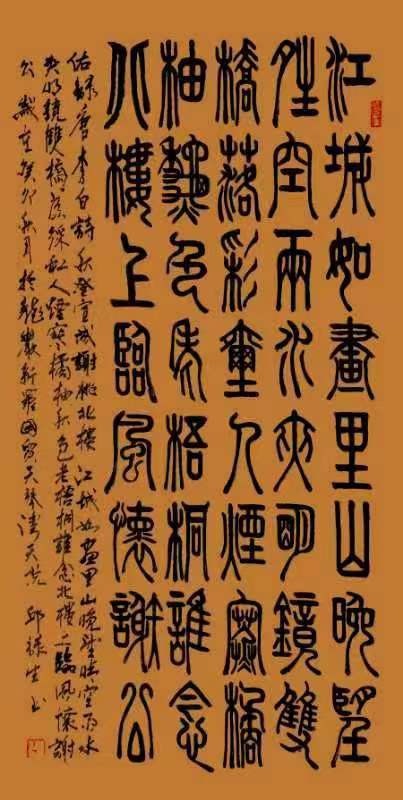 江城如畫里山晚望
晴空兩水夾明鏡雙
橋落彩虹人煙寒橘
柚秋色老梧桐誰念
北樓上臨風懷謝公
錄唐李白詩秋登宣城謝朓北樓 江城如畫里山晚望晴空兩水
夾明鏡雙橋落綵虹人煙寒橘柚秋色老梧桐誰念北樓上臨風懷謝
公 歲在癸卯秋月於龍巖新羅國寶天琴灣天苑 邱祿生書